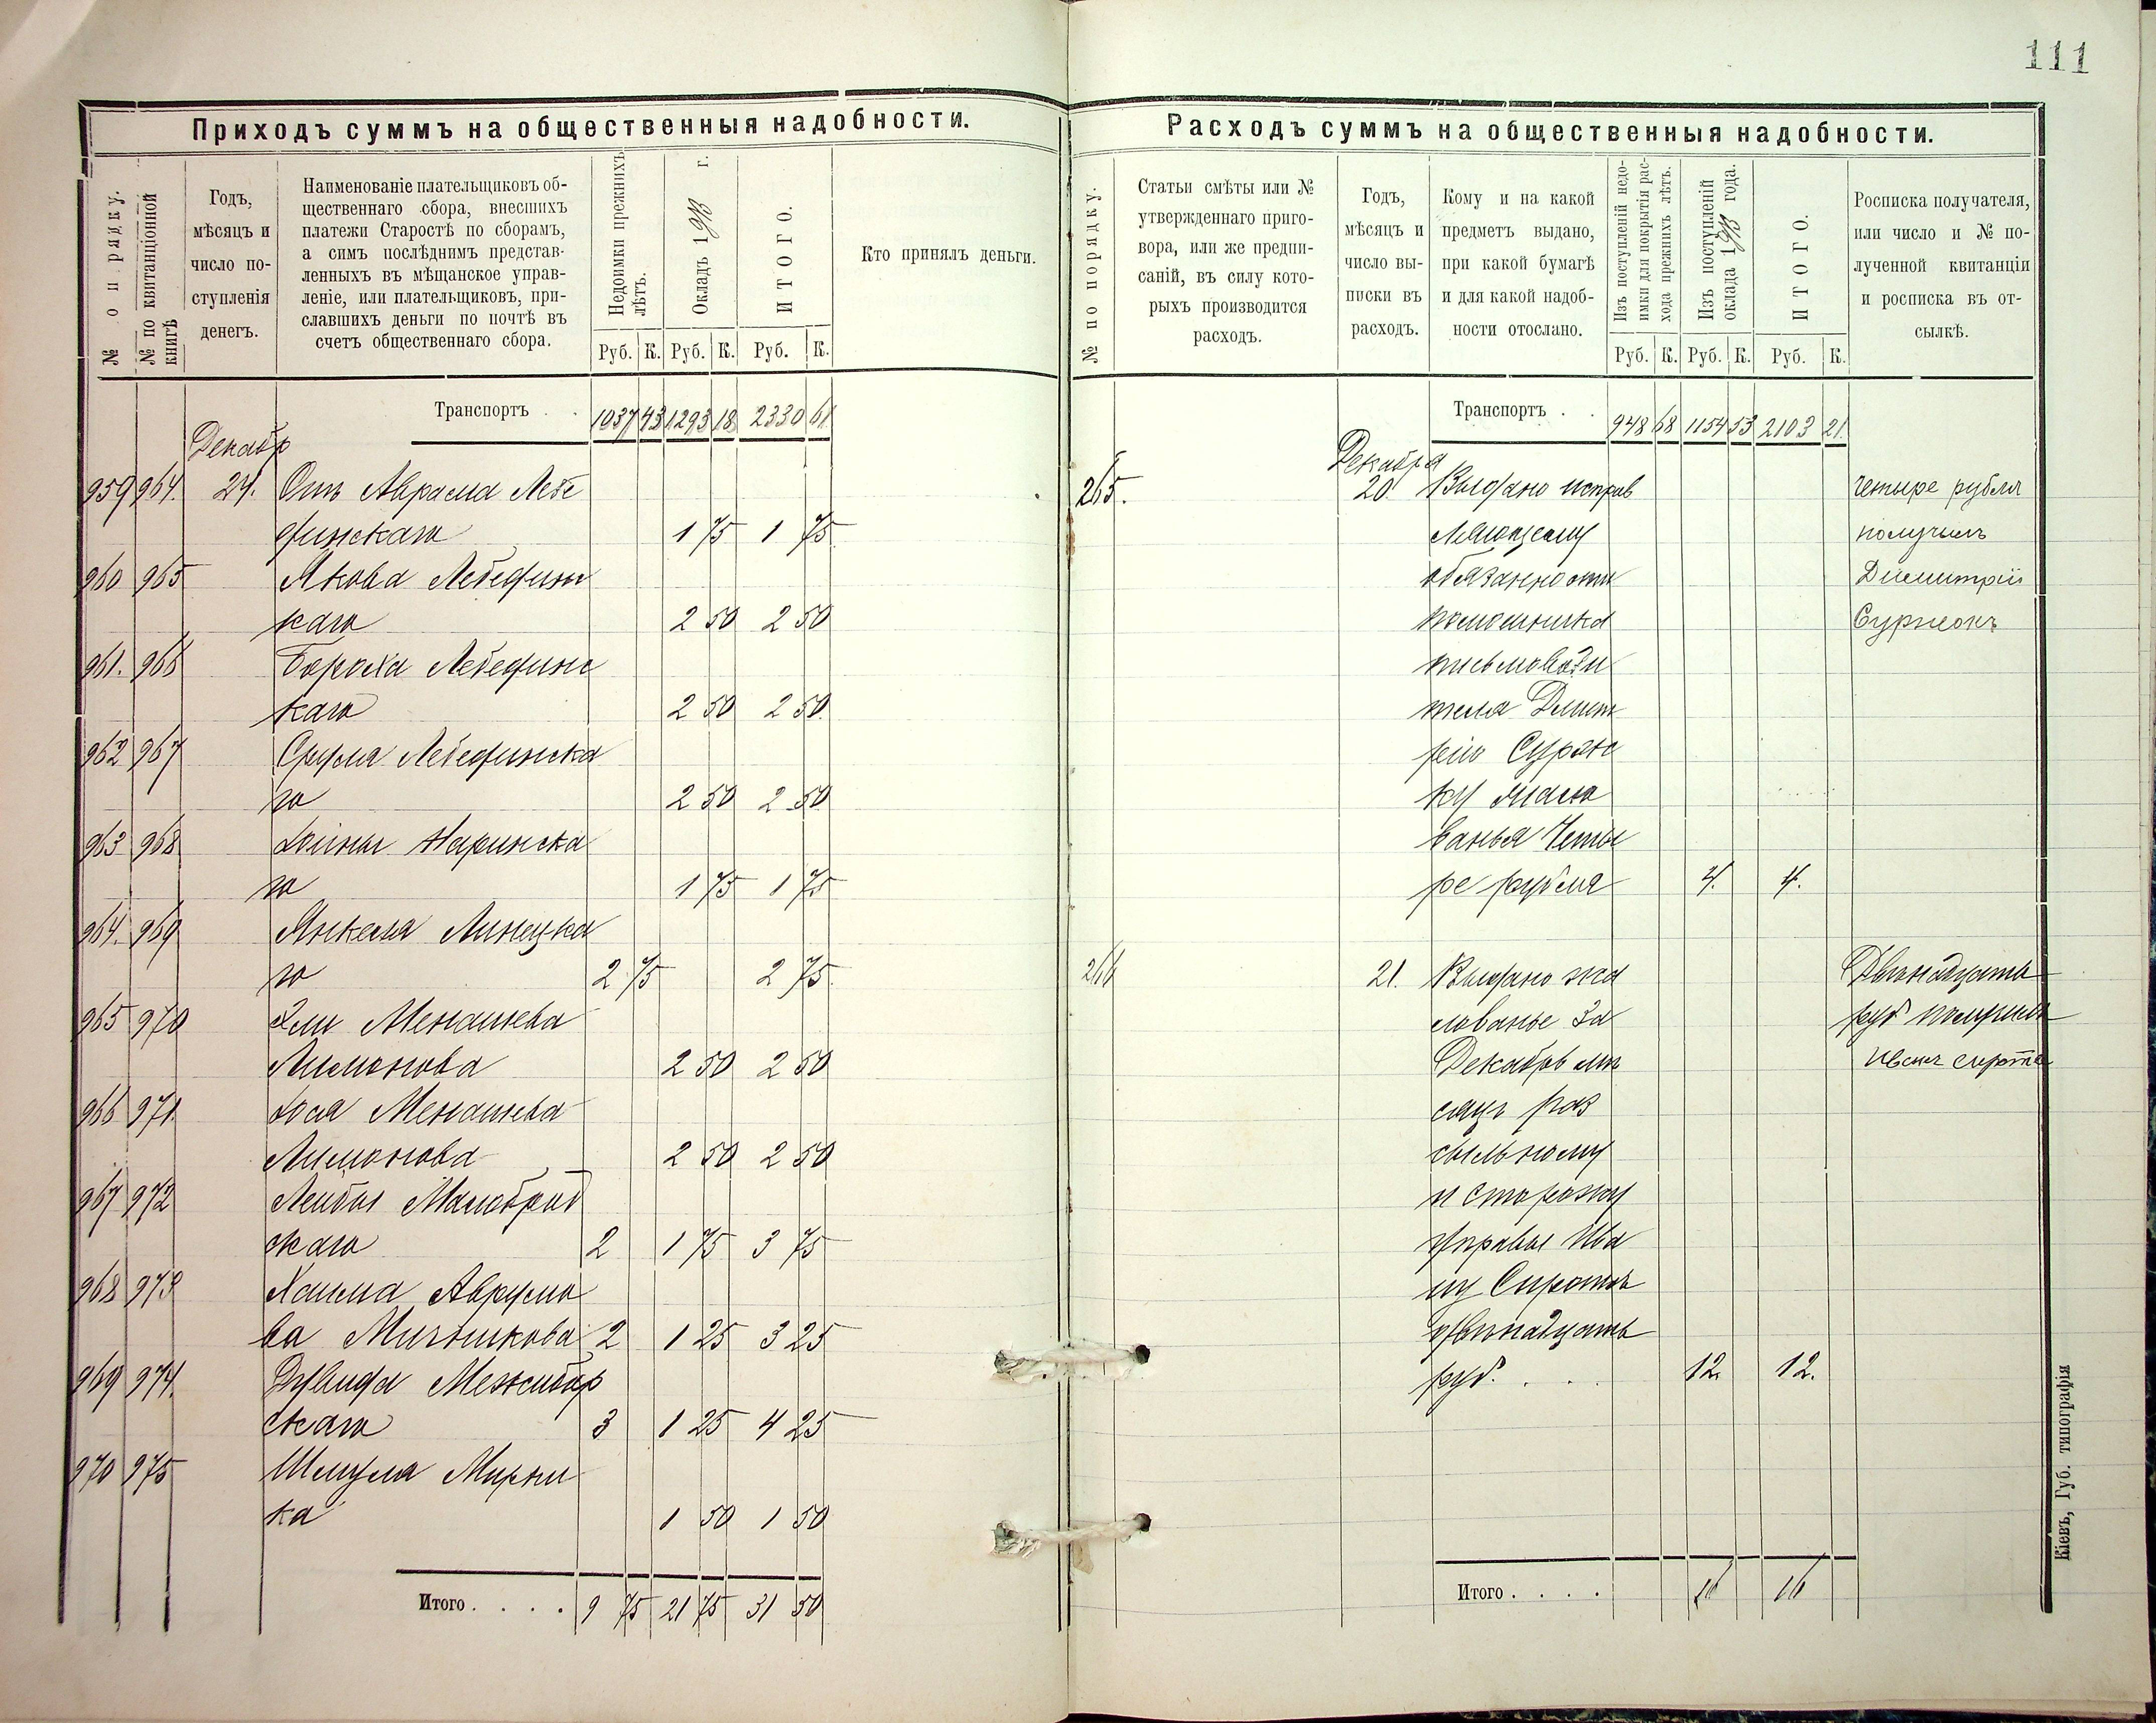 111
Приходъ суммъ на общественныя надобности.
№ по порядку.
№ по квитанціонной книгѣ
Годъ,
мѣсяцъ и
число по-
ступленія
денегъ.
Наименованіе плательщиковъ об-
щественнаго сбора, внесшихъ
платежи Старостѣ по сборамъ,
а симъ послѣднимъ представ-
ленныхъ въ мѣщанское управ-
леніе, или плательщиковъ, при-
славшихъ деньги по почтѣ въ
счетъ общественнаго сбора.
Недоимки прежнихъ
лѣтъ.
Окладъ 1913 г.
ИТОГО.
Кто принялъ деньги.
Руб. К. Руб. К. Руб. К.
Транспортъ . . 1037 43 1293 18 2330 61
Декабр
959 964. 24. Отъ Аврама Лебе
динскаго 1 75 1 75
960 965 Якова Лебедин
скаго 2 50 2 50
961. 966 Бороха Лебединс
каго 2 50 2 50
962 967 Сруля Лебединска
го 2 50 2 50
963 968 Наринска
го 1 75 1 75
964. 969 Янкеля Линецка
го 2 75 2 75
965 970 Эли Менашева
Лимонова 2 50 2 50
966 971. Іося Менашева
Лимонова 2 50 2 50
967 972 Лейбы Малоброд
скаго 2 1 75 3 75
968 973 Хаима Аврумо
ва Мичникова 2 1 25 3 25
969 974. Дувида Межибор
скаго 3 1 25 4 25
970 975 Шмуля Мирни
ка 1 50 1 50
Итого . . . . 9 75 21 75 31 50
Расходъ суммъ на общественныя надобности.
№ по порядку.
Статьи смѣты или №
утвержденнаго приго-
вора, или же предпи-
саній, въ силу кото-
рыхъ производится
расходъ.
Годъ,
мѣсяцъ и
число вы-
писки въ
расходъ.
Кому и на какой
предметъ выдано,
при какой бумагѣ
и для какой надоб-
ности отослано.
Изъ поступленій недо-
имки для покрытія рас-
хода прежнихъ лѣтъ.
Изъ поступленій
оклада 1913 года.
ИТОГО.
Росписка получателя,
или число и № по-
лученной квитанціи
и росписка въ от-
сылкѣ.
Руб. К. Руб. К. Руб. К.
Транспортъ . . 948 68 1154 53 2103 21.
Декабря
265. 20. Выдано исправ четыре рубля
ляющему получилъ
обязанности Димитрій
помощника Суржокъ
письмоводи
теля Дмит
рію Сурж
ку жало
ванья Четы
ре рубля 4. 4.
266 21. Выдано жа Двѣнадцать
лованье за руб получилъ
Декабрь мѣ Иванъ сирота
сяцъ раз
сыльному
и сторожу
управы Ива
ну Сиротѣ
двѣнадцать
руб. . . . 12. 12.
Итого . . . . 16 16
Кіевъ, Губ. типографія